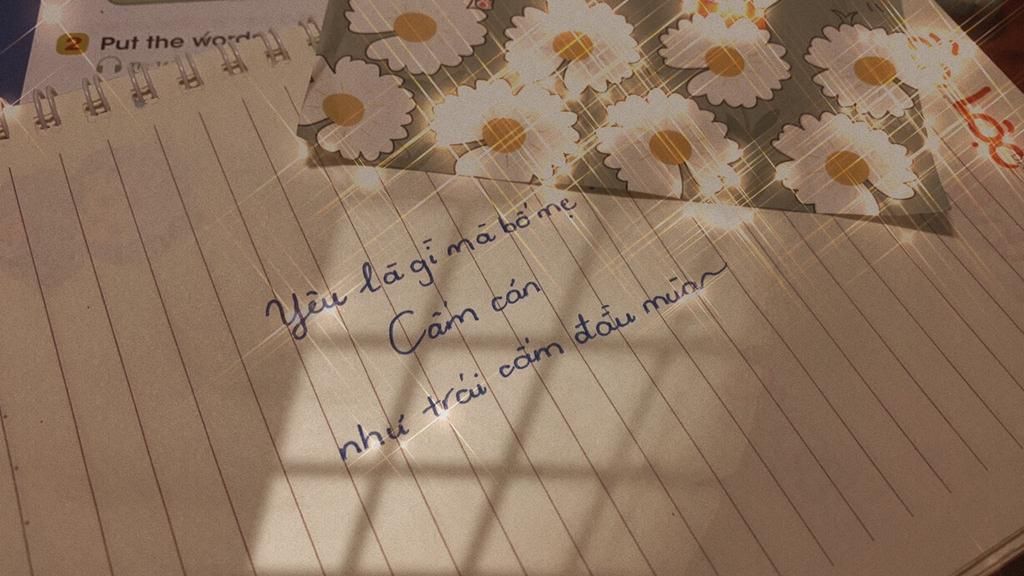 2 Put the words
Yêu là gì mà bố mẹ
Cấm cản
như trái cấm đầu mùa